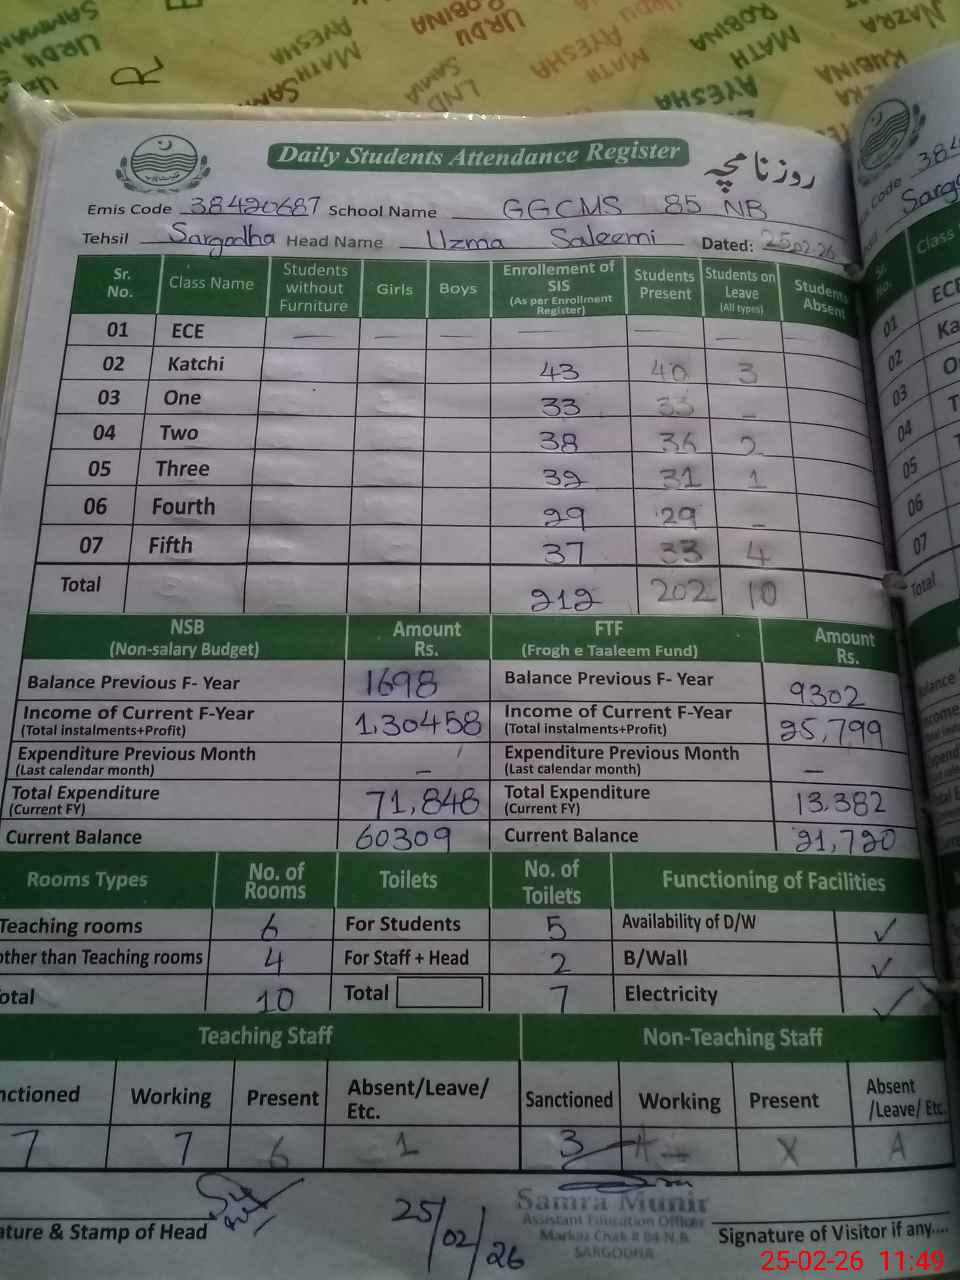 URDU
SAMINA
URDU
R
MATH
AYESHA
URDU
ROBINA
AYESHA
MATH
ROBINA
MATH
AYESHA
RUBINA
NAZRA
Daily Students Attendance Register
روزنامچہ
Emis Code 38420687 School Name GGCMS 85 NB
Tehsil Sargodha Head Name Uzma Saleemi Dated: 25-02-26
Sr. No. Class Name Students without Furniture Girls Boys Enrollement of SIS (As per Enrollment Register) Students Present Students on Leave (All types) Students Absent
01 ECE — — — — — —
02 Katchi 43 40 3
03 One 33 33 –
04 Two 38 36 2
05 Three 32 31 1
06 Fourth 29 29 –
07 Fifth 37 33 4
Total 212 202 10
NSB (Non-salary Budget) Amount Rs. FTF (Frogh e Taaleem Fund) Amount Rs.
Balance Previous F- Year 1698 Balance Previous F- Year 9302
Income of Current F-Year (Total instalments+Profit) 1,30458 Income of Current F-Year (Total instalments+Profit) 25,799
Expenditure Previous Month (Last calendar month) – Expenditure Previous Month (Last calendar month) –
Total Expenditure (Current FY) 71,848 Total Expenditure (Current FY) 13,382
Current Balance 60309 Current Balance 21,720
Rooms Types No. of Rooms Toilets No. of Toilets Functioning of Facilities
Teaching rooms 6 For Students 5 Availability of D/W ✓
other than Teaching rooms 4 For Staff + Head 2 B/Wall ✓
otal 10 Total 7 Electricity ✓
Teaching Staff Non-Teaching Staff
nctioned Working Present Absent/Leave/ Etc. Sanctioned Working Present Absent /Leave/ Etc.
7 7 6 1 3 X A
25/02/26
Samra Munir
Assistant Education Officer
Markaz Chak # 84 N.B
SARGODHA
ature & Stamp of Head Signature of Visitor if any....
25-02-26 11:49